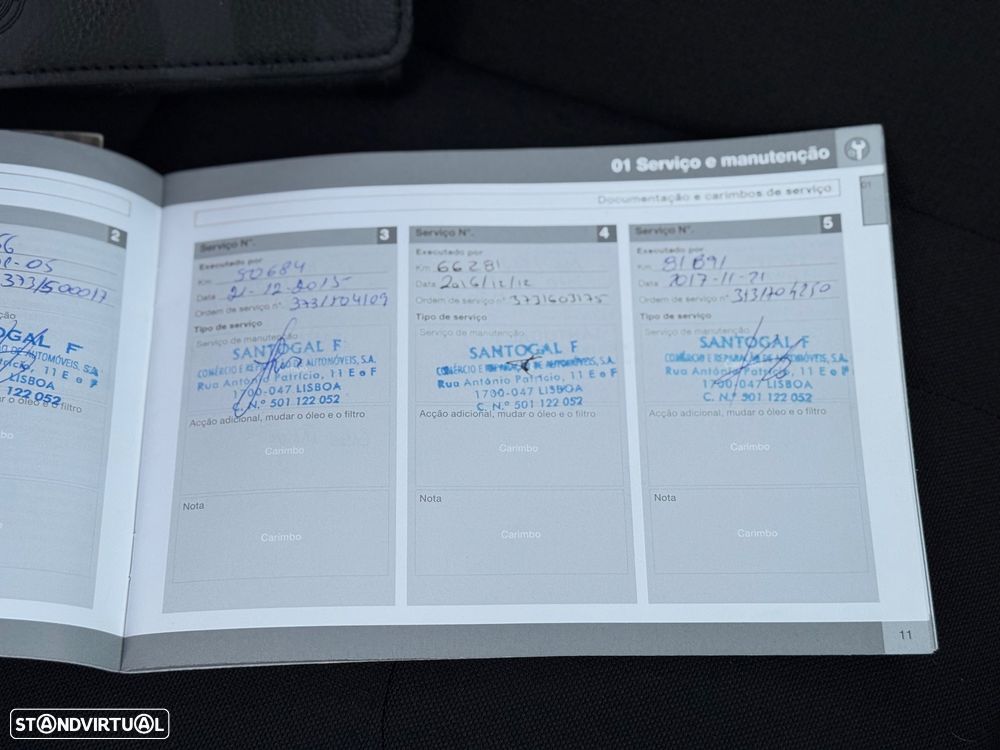 2
-05
373/500017
OGAL F
DE AUTOMÓVEIS, S.A.
Patrício, 11 E e F
LISBOA
122 052
r o óleo e o filtro
01 Serviço e manutenção
Documentação e carimbos de serviço
01
Serviço N°. 3
Executado por
Km 50684
Data 21-12-2015
Ordem de serviço n° 373/504109
Tipo de serviço
Serviço de manutenção
SANTOGAL F
COMÉRCIO E REPARAÇÃO DE AUTOMÓVEIS, S.A.
Rua António Patrício, 11 E e F
1700-047 LISBOA
C. N.º 501 122 052
Acção adicional, mudar o óleo e o filtro
Carimbo
Nota
Carimbo
Serviço N°. 4
Executado por
Km 66281
Data 2016/12/12
Ordem de serviço n° 3731603175
Tipo de serviço
Serviço de manutenção
SANTOGAL F
COMÉRCIO E REPARAÇÃO DE AUTOMÓVEIS, S.A.
Rua António Patrício, 11 E e F
1700-047 LISBOA
C. N.º 501 122 052
Acção adicional, mudar o óleo e o filtro
Carimbo
Nota
Carimbo
Serviço N°. 5
Executado por
Km 81891
Data 2017-11-21
Ordem de serviço n° 313/704250
Tipo de serviço
Serviço de manutenção
SANTOGAL F
COMÉRCIO E REPARAÇÃO DE AUTOMÓVEIS, S.A.
Rua António Patrício, 11 E e F
1700-047 LISBOA
C. N.º 501 122 052
Acção adicional, mudar o óleo e o filtro
Carimbo
Nota
Carimbo
11
STANDVIRTUAL